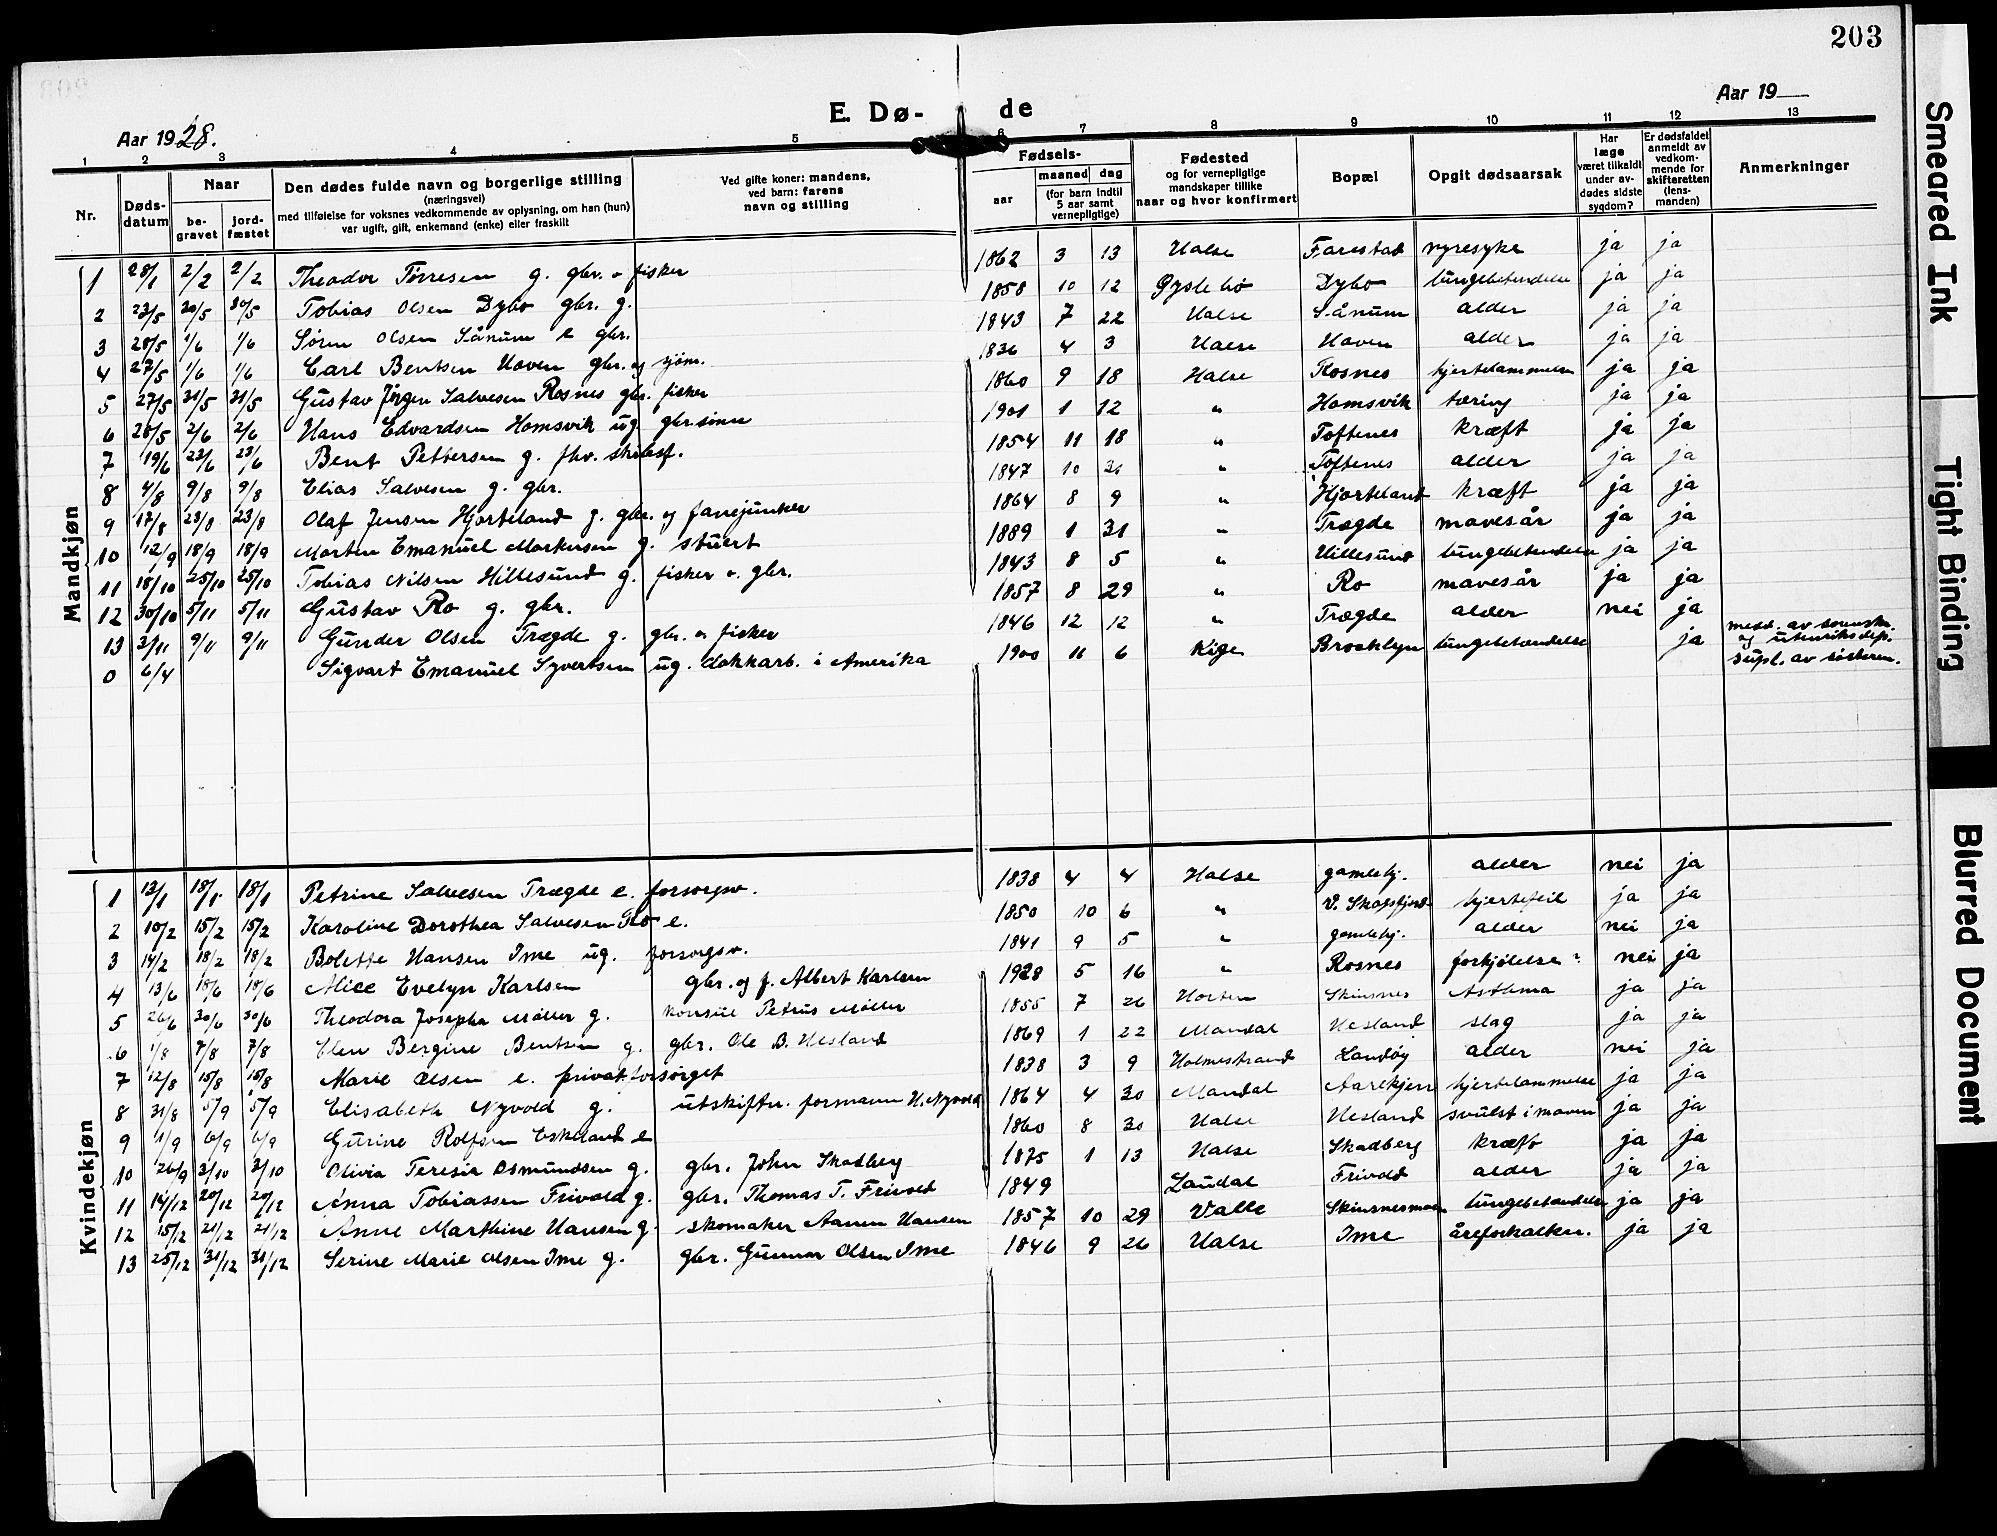 203
E. Dø- de
Aar 1928.
Aar 19
1 2 3 4 5 6 7 8 9 10 11 12 13
Nr.
Døds-datum
Naar
be-gravet
jord-fæstet
Den dødes fulde navn og borgerlige stilling
(næringsvei)
med tilføielse for voksnes vedkommende av oplysning, om han (hun)
var ugift, gift, enkemand (enke) eller fraskilt
Ved gifte koner: mandens,
ved barn: farens
navn og stilling
Fødsels-
aar
maaned dag
(for barn indtil
5 aar samt
vernepligtige)
Fødested
og for vernepligtige
mandskaper tillike
naar og hvor konfirmert
Bopæl
Opgit dødsaarsak
Har
læge
været tilkaldt
under av-
dødes sidste
sygdom?
Er dødsfaldet
anmeldt av
vedkom-
mende for
skifteretten
(lens-
manden)
Anmerkninger
Mandkjøn
1 28/1 2/2 2/2 Theodor Tørresen g. gbr. o fisker 1862 3 13 Halse Farestad nyresyke ja ja
2 23/5 30/5 30/5 Tobias Olsen Dybo gbr. g. 1858 10 12 Øyslebø Dybo lungebetændelse ja ja
3 28/5 1/6 1/6 Søren Olsen Sånum e gbr. 1843 7 22 Halse Sånum alder ja ja
4 27/5 1/6 1/6 Carl Bentsen Hoven gbr. og sjøm. 1836 4 3 Halse Hoven alder ja ja
5 27/5 31/5 31/5 Gustav Jørgen Salvesen Rosnes gbr. fisker 1860 9 18 Halse Rosnes hjertelammelse ja ja
6 28/5 2/6 2/6 Hans Edvardsen Homsvik ug. gbr sønn 1901 1 12 " Homsvik tæring ja ja
7 19/6 23/6 23/6 Bent Pettersen g. fhv. skibsf. 1854 11 18 " Toftenes kræft ja ja
8 4/8 9/8 9/8 Elias Salvesen g. gbr. 1847 10 31 " Toftenes alder ja ja
9 17/8 23/8 23/8 Olaf Jensen Hjorteland g. gbr. og fanejunker 1864 8 9 " Hjorteland kræft ja ja
10 12/9 18/9 18/9 Morten Emanuel Mortensen g. stuert 1889 1 31 " Trægde mavesår ja ja
11 18/10 25/10 25/10 Tobias Nilsen Hillesund g. fisker o. gbr. 1843 8 5 " Hillesund lungebetændelse ja ja
12 30/10 5/11 5/11 Gustav Ro g. gbr. 1857 8 29 " Ro mavesår ja ja
13 3/11 9/11 9/11 Gunder Olsen Trægde g. gbr. og fisker 1846 12 12 " Trægde alder nei ja
0 6/4 Sigvart Emanuel Syvertsen ug. dokkarb. i Amerika 1900 11 6 Kige Brooklyn lungebetændelse ja medd. av
og utenriksdep.
supl. av søsteren.
Kvindekjøn
1 13/1 18/1 18/1 Petrine Salvesen Trægde e. forsorgsv. 1838 4 4 Halse gamlehj. alder nei ja
2 10/2 15/2 15/2 Karoline Dorothea Salvesen Ro e. 1850 10 6 " V. Skogsfjord hjertefeil ja ja
3 14/2 18/2 18/2 Bolette Hansen Ime ug. forsorgsv. 1841 9 5 " gamlehj. alder nei ja
4 13/6 18/6 18/6 Alice Evelyn Karlsen gbr. og f. Albert Karlsen 1928 5 16 " Rosnes forkjølelse? nei ja
5 26/6 30/6 30/6 Theodora Josepha Møller g. konsul Petrus Møller 1855 7 26 Horten Skinsnes Asthma ja ja
6 1/8 7/8 7/8 Elen Bergine Bentsen g. gbr. Ole B. Nesland 1869 1 22 Mandal Nesland slag ja ja
7 12/8 15/8 15/8 Marie Olsen e. privat forsørget 1838 3 9 Holmestrand Landøy alder nei ja
8 31/8 5/9 5/9 Elisabeth Nyvold g. utskiftn. formann N. Nyvold 1864 4 30 Mandal Aarekjerr hjertelammelse ja ja
9 1/9 6/9 6/9 Gurine Rolfsen Eskeland e 1860 8 30 Halse Nesland svulst i maven ja ja
10 26/9 3/10 3/10 Olivia Teresia Osmundsen g. gbr. John Skadberg 1875 1 13 Halse Skadberg kræft ja ja
11 14/12 20/12 20/12 Anna Tobiassen Frivold g. gbr. Thomas T. Frivold 1849 Laudal Frivold alder ja ja
12 15/12 21/12 21/12 Anne Marthine Hansen g. skomaker Aanen Hansen 1857 10 29 Valle Skinsnesmoen lungebetændelse ja ja
13 25/12 31/12 31/12 Serine Marie Olsen Ime g. gbr. Gunnar Olsen Ime 1846 9 26 Halse Ime åreforkalkn. ja ja
Smeared Ink
Tight Binding
Blurred Document